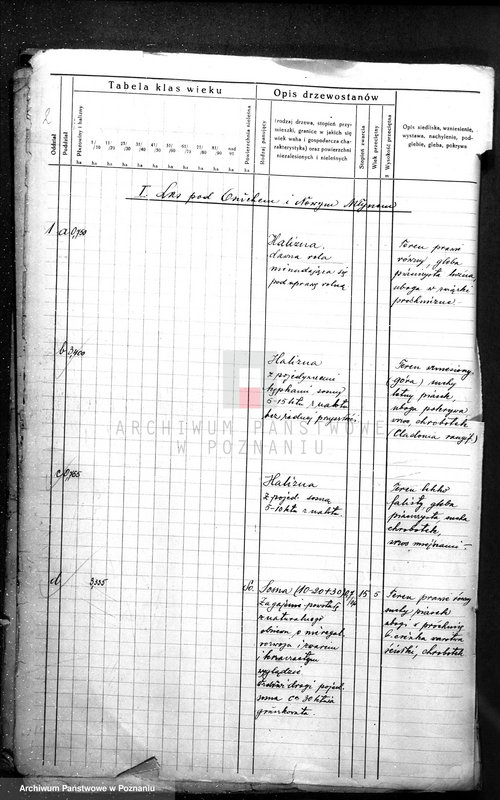 2
Tabela klas wieku
Opis drzewostanów
Oddział
Pododdział
Płazowiny i halizny
Powierzchnia nieleśna
Rodzaj panujący
(rodzaj drzewa, stopień przy-
mieszki, granice w jakich się
wiek waha i gospodarcza cha-
rakterystyka) oraz powierzchni
niezalesionych i nieleśnych
Stopień zwarcia
Wiek przeciętny
Wysokość przeciętna
Opis siedliska, wzniesienie,
wystawa, nachylenie, pod-
glebie, gleba, pokrywa
ha
I. Las pod i Nowym Młynem
1 a 0,750
Halizna.
dawna rola
nienadająca się
pod uprawę rolną
Teren prawie
równy, gleba
piaszczysta luźna
uboga w związki
próchniczne
b 3,400
Halizna
z pojedynczemi
kępkami sosny
5-15 letn. z nalotu
bez żadnej przyszłości
Teren wzniesiony
(góra) suchy
lotny piasek,
uboga pokrywa
wrzos, chrobotek
(Cladonia rangif.)
c 0,765
Halizna
z pojed. sosną
5-10 letn. z nalotu.
Teren lekko
falisty, gleba
piaszczysta, sucha
chrobotek,
wrzos miejscami.
d 3,335
So. Sosna (10-20+30) 15 5
Zagajenie powstałe
z naturalnego
obsiewu, o nieregul.
rozwoju i zwarciu
i
wyglądzie
drogi pojed.
sosna ca 30 letnia
Teren prawie równy
suchy piasek
ubogi w próchnicę
b. cienka warstwa
ściółki, chrobotek
ARCHIWUM PAŃSTWOWE
W POZNANIU
Archiwum Państwowe w Poznaniu